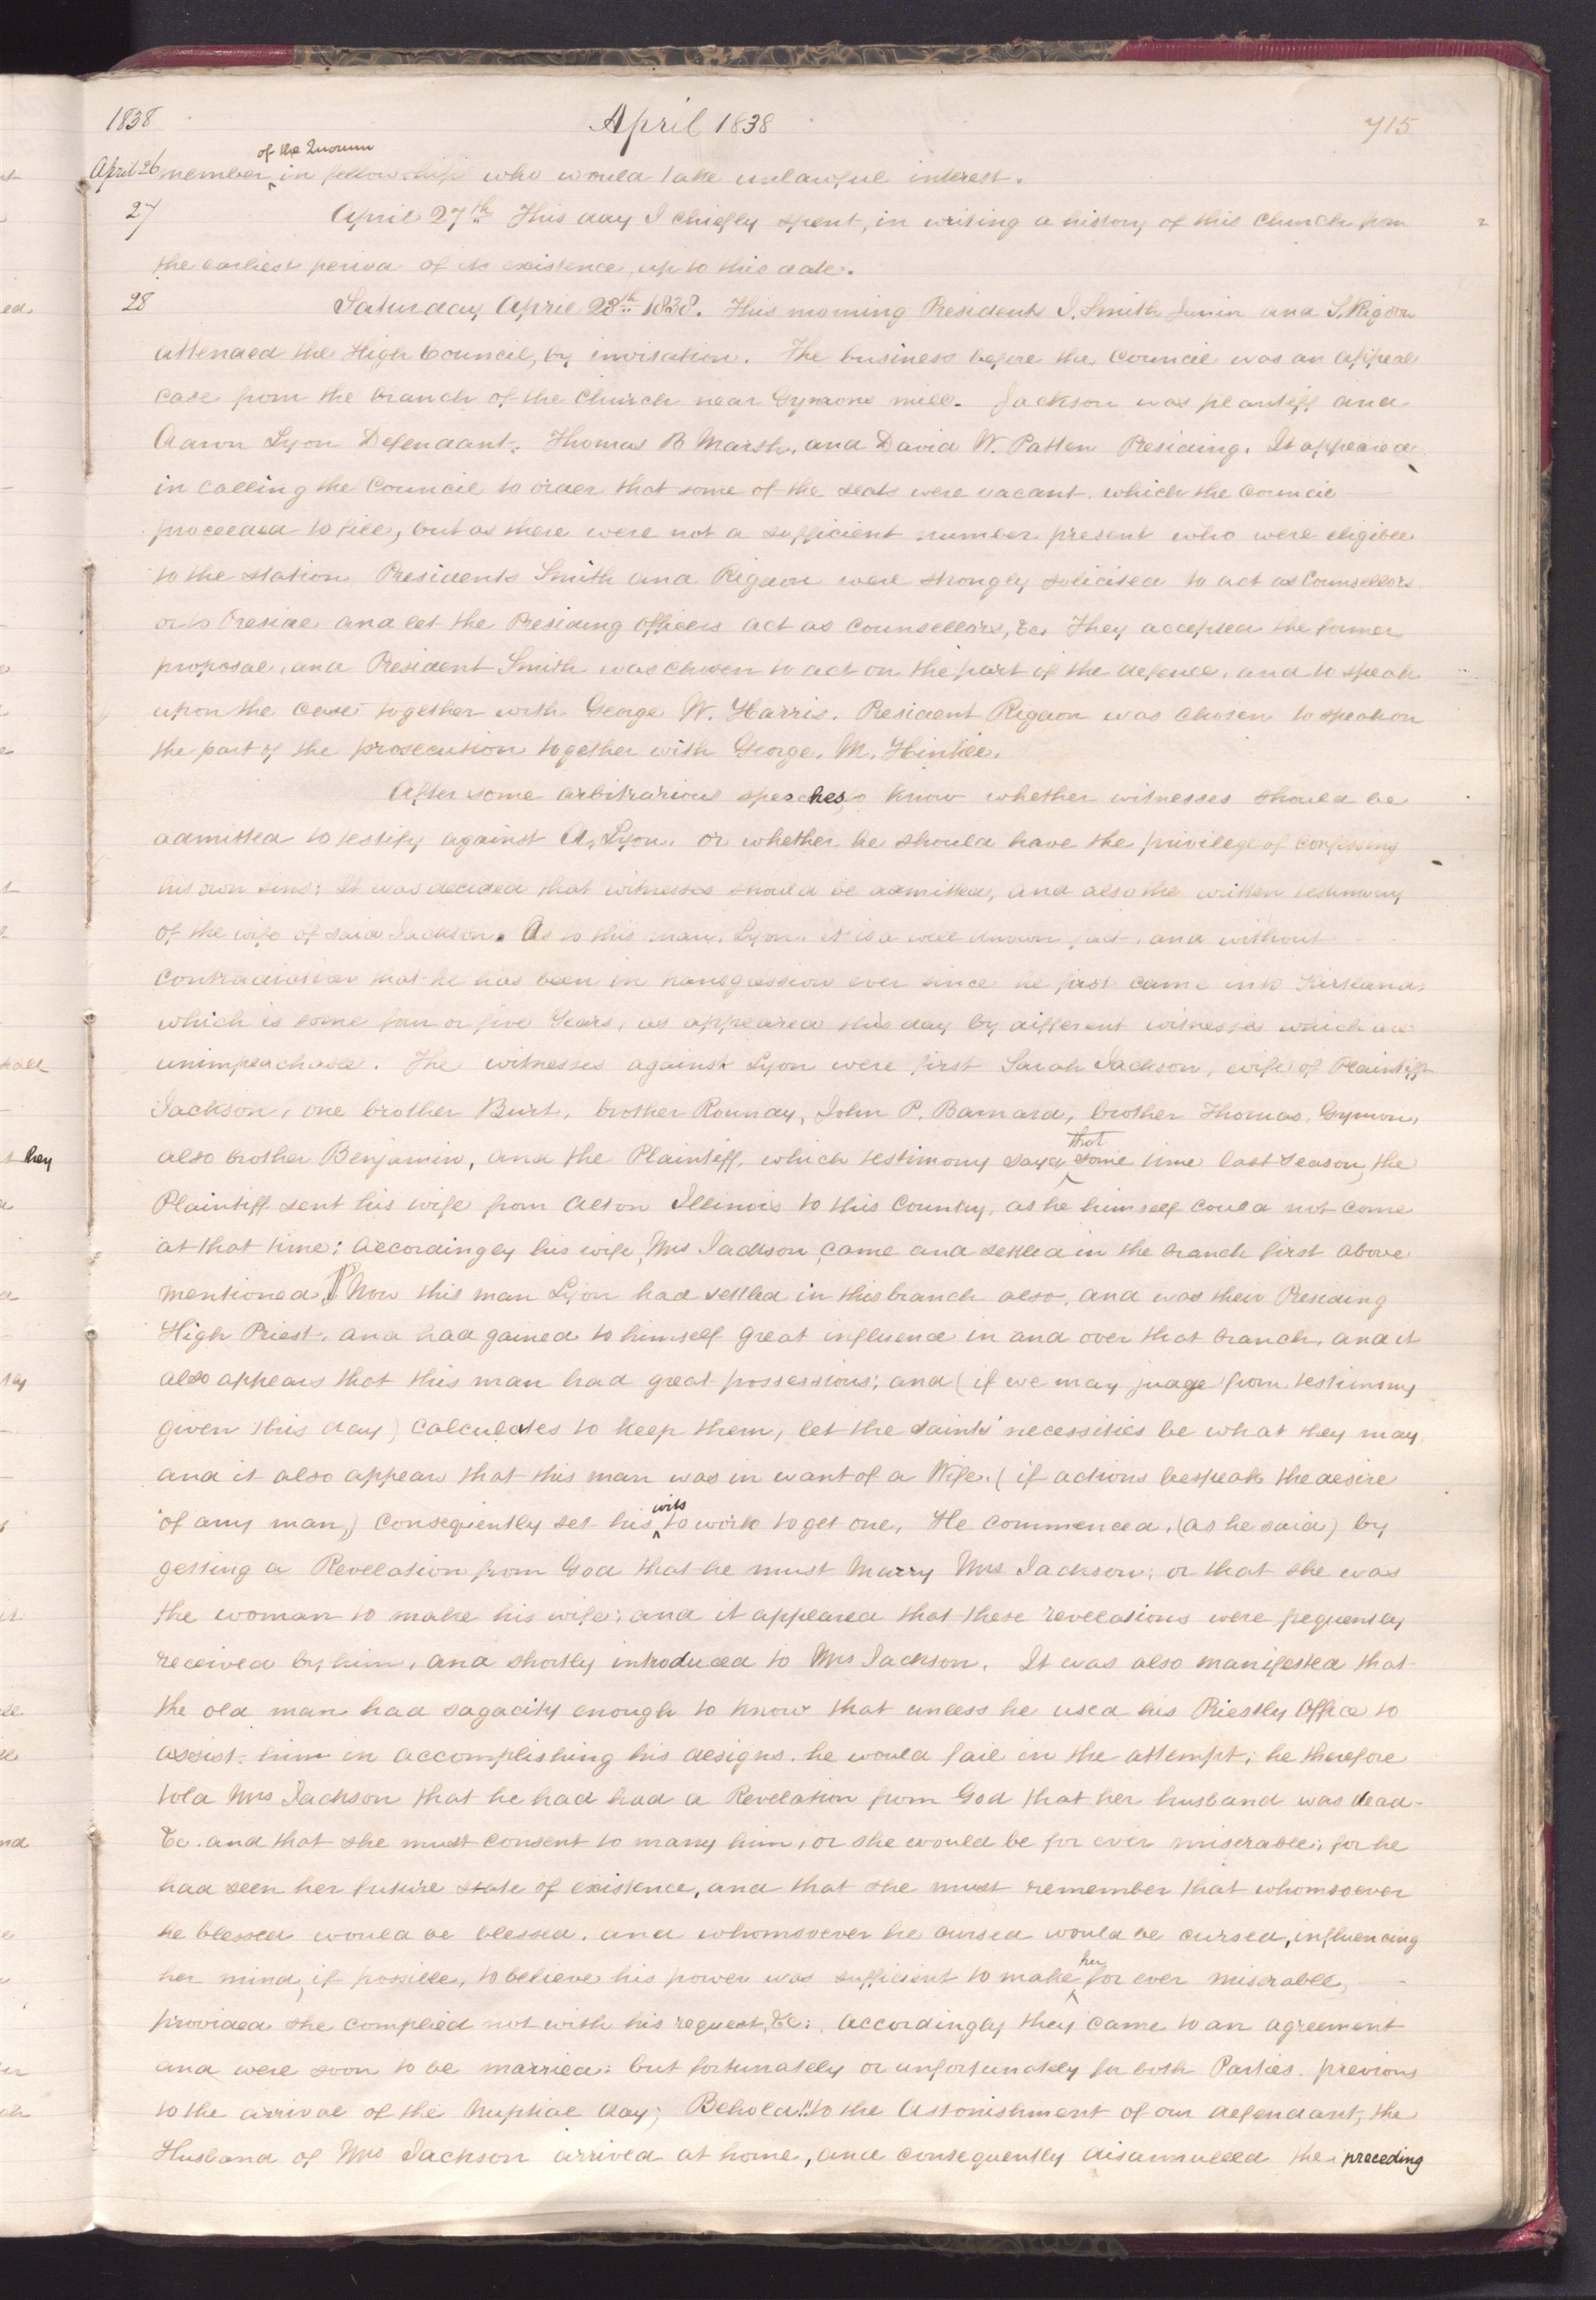 1838 April 1838 715
April 26 member of the Quorum in fellowship who would take unlawful interest.
27 April 27th This day I chiefly spent, in writing a history of this Church from
the earliest period of its existence, up to this date.
28 Saturday April 28th 1838. This morning Presidents J. Smith Junior and S. Rigdon
attended the High Council, by invitation. The business before the Council was an appeal
case from the branch of the Church near Gymons mill. Jackson was plantiff and
Aaron Lyon Defendant. Thomas B Marsh, and David W. Patten Presiding. It appeared
in calling the Council to order that some of the seats were vacant. which the Council
proceeded to fill, but as there were not a sufficient number present who were eligible
to the station, Presidents Smith and Rigdon were strongly solicited to act as Counsellors
or to Preside and let the Presiding officers act as Counsellors, &c. They accepted the former
proposal, and President Smith was chosen to act on the part of the defence, and to speak
upon the case together with George W. Harris. President Rigdon was chosen to speak on
the part of the prosecution together with George. M. Hinkle.
After some arbitrarious speeches, to know whether witnesses should be
admitted to testify against A, Lyon, or whether he should have the privilege of confessing
his own sins: It was decided that witnesses should be admitted, and also the written testimony
of the wife of said Jackson. As to this man, Lyon, it is a well known fact, and without
contradiction that he has been in transgression ever since he first came into Kirtland,
which is some four or five Years, as appeared this day by different witnesses which are
unimpeachable. The witnesses against Lyon were first Sarah Jackson, wife of Plaintiff
Jackson, one brother Burt, brother Roundy, John P. Barnard, brother Thomas. Gymon,
also brother Benjamin, and the Plaintiff, which testimony says that some time last season, the
Plaintiff sent his wife from Alton Illinois to this Country, as he himself could not come
at that time: accordingly his wife, Mrs Jackson, came and settled in the branch first above
mentioned, ¶ Now this man Lyon had settled in this branch also, and was their Presiding
High Priest, and had gained to himself great influence in and over that branch, and it
also appears that this man had great possessions; and (if we may judge from testimony
given this day) calculates to keep them, let the saints' necessities be what they may,
and it also appears that this man was in want of a Wife, (if actions bespeak the desire
of any man,) consequently set his wits to work to get one, He commenced, (as he said) by
getting a Revelation from God that he must Marry Mrs Jackson; or that she was
the woman to make his wife; and it appeared that these revelations were frequently
received by him, and shortly introduced to Mrs Jackson. It was also manifested that
the old man had sagacity enough to know that unless he used his Priestly Office to
assist him in accomplishing his designs, he would fail in the attempt; he therefore
told Mrs Jackson that he had had a Revelation from God that her husband was dead
&c. and that she must consent to marry him, or she would be for ever miserable; for he
had seen her future state of existence, and that she must remember that whomsoever
he blessed would be blessed, and whomsoever he cursed would be cursed, influencing
her mind, if possible, to believe his power was sufficient to make her for ever miserable,
provided she complied not with his request, &c: accordingly they came to an agreement
and were soon to be married: but fortunately or unfortunately for both Parties, previous
to the arrival of the Nuptial day; Behold!! to the Astonishment of our defendant, the
Husband of Mrs Jackson arrived at home, and consequently disannulled the preceding